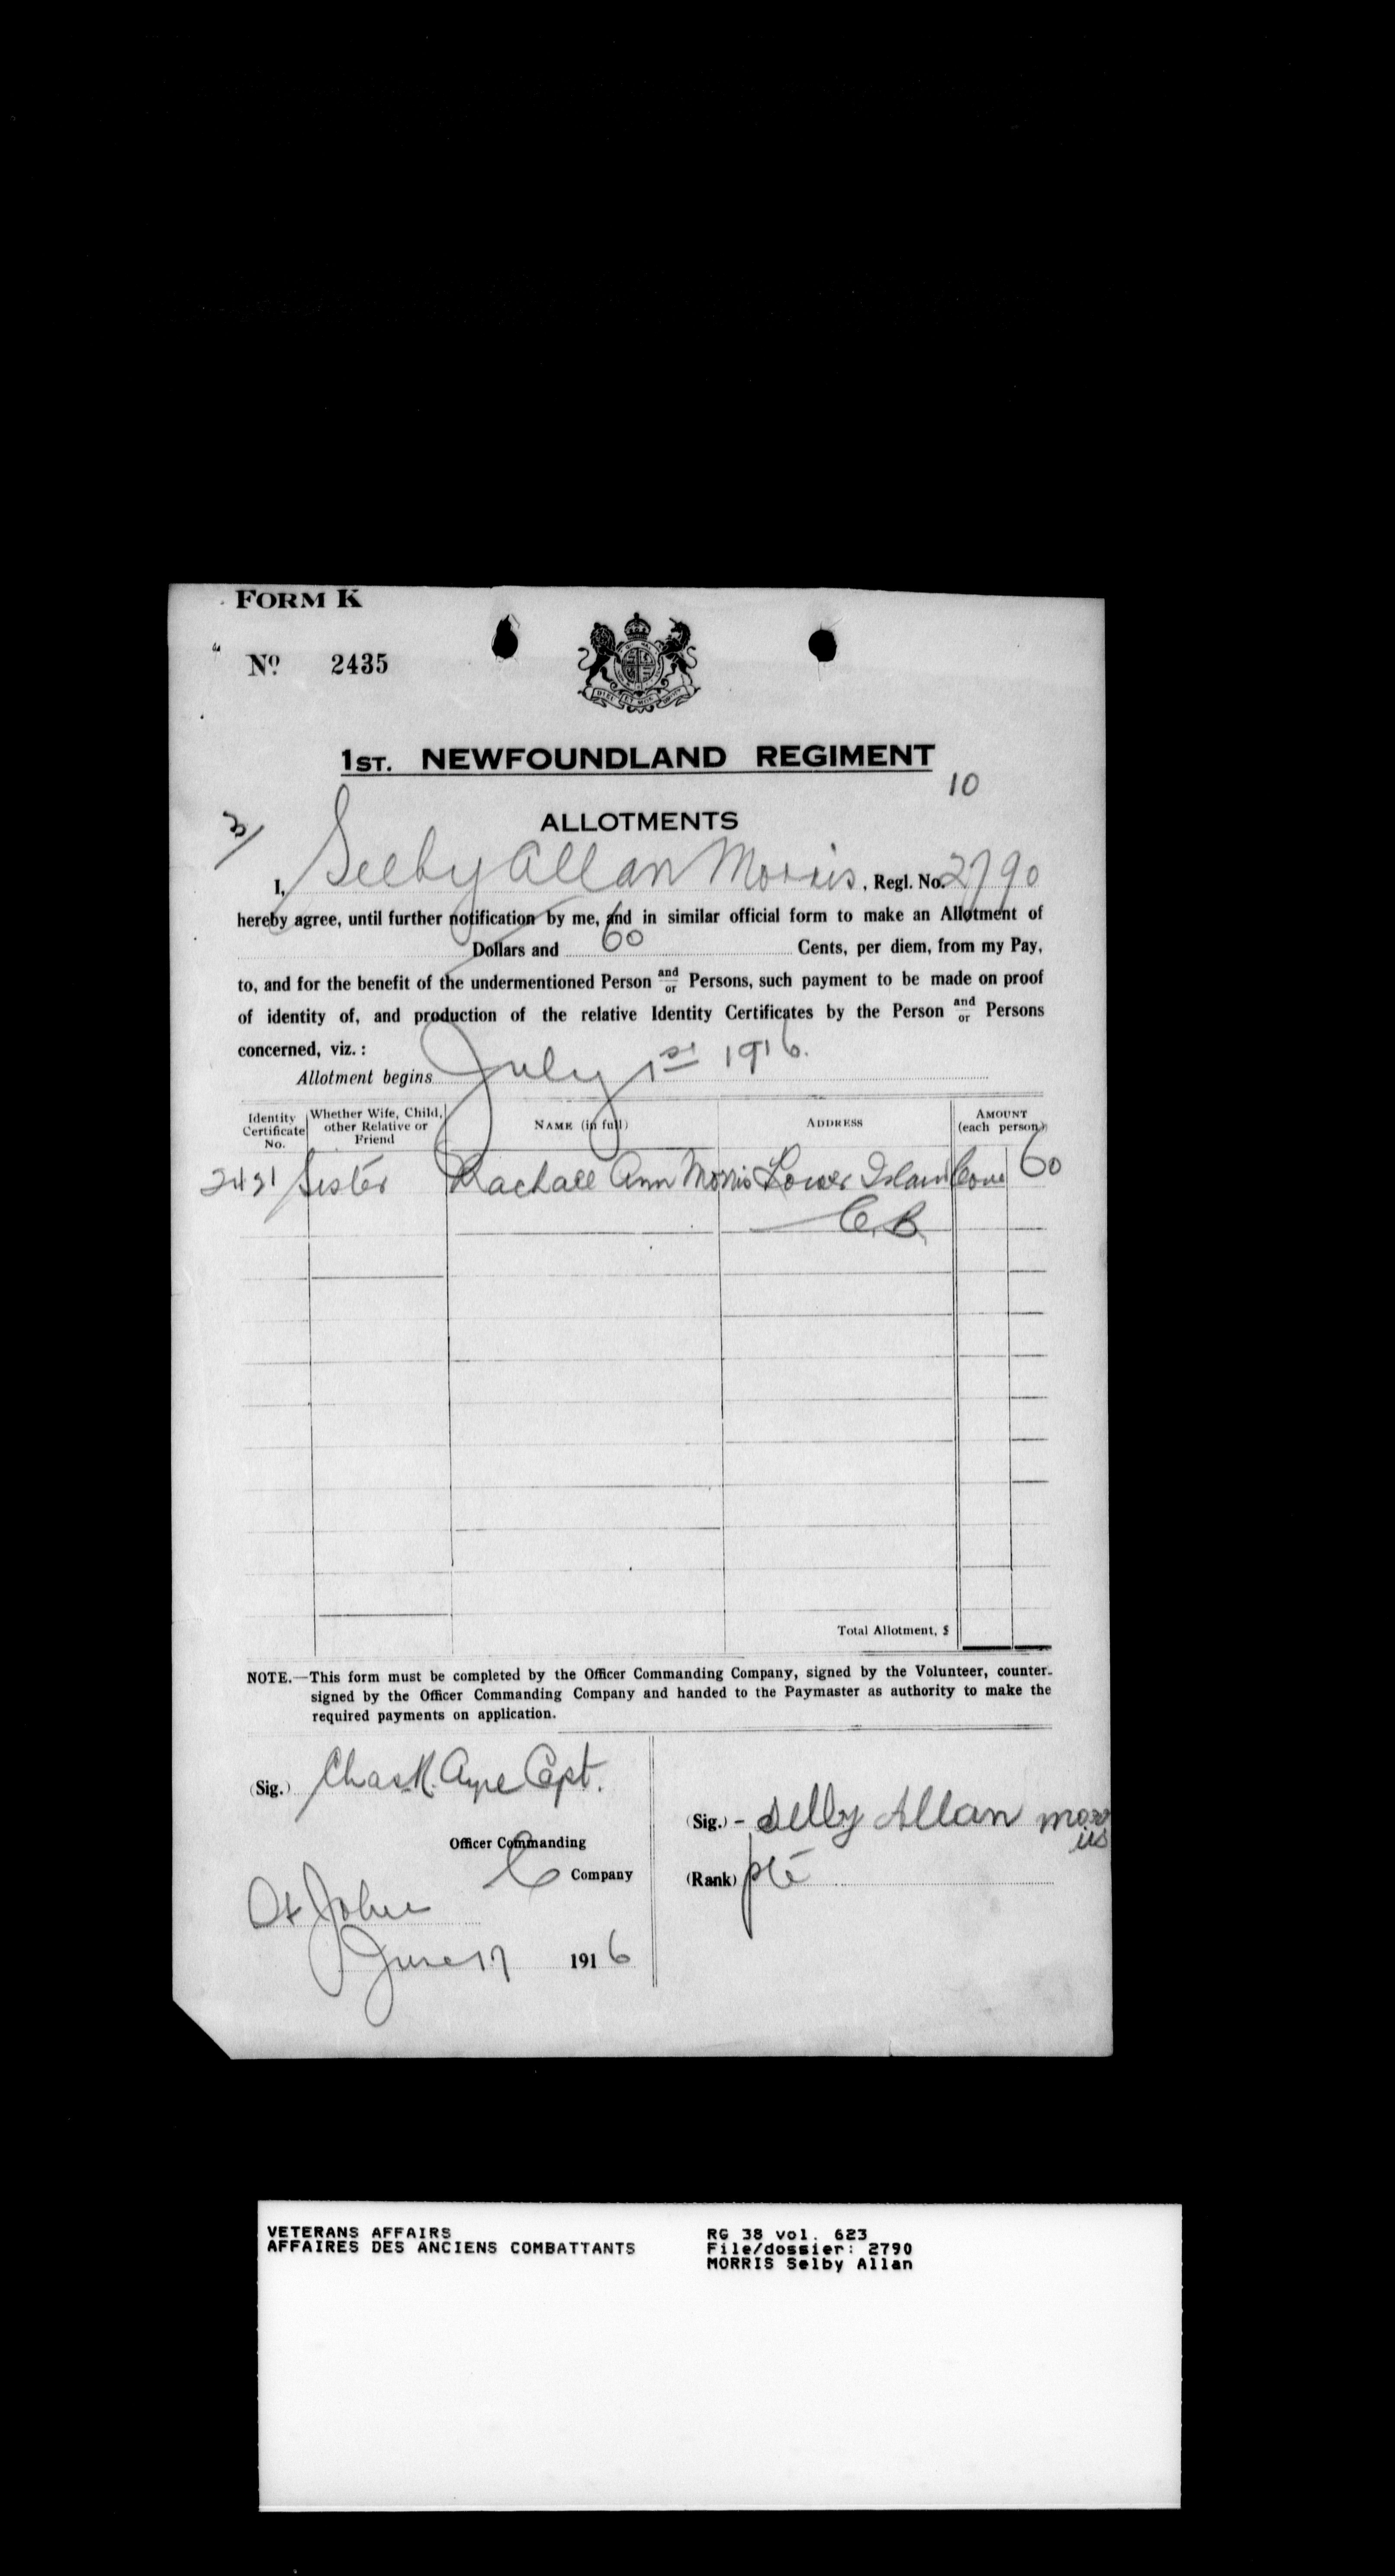 FORM K
No. 2435
DIEU ET MON DROIT
1ST. NEWFOUNDLAND REGIMENT
10
ALLOTMENTS
3/
I, Selby Allan Morris, Regl. No. 2790
hereby agree, until further notification by me, and in similar official form to make an Allotment of
Dollars and 60 Cents, per diem, from my Pay,
to, and for the benefit of the undermentioned Person and/or Persons, such payment to be made on proof
of identity of, and production of the relative Identity Certificates by the Person and/or Persons
concerned, viz.:
Allotment begins July 1st 1916.
Identity Certificate No. Whether Wife, Child, other Relative or Friend NAME (in full) ADDRESS AMOUNT (each person)
2431 Sister Rachall Ann Morris Lower Islan Cove 60
C.B.
Total Allotment, $
NOTE.—This form must be completed by the Officer Commanding Company, signed by the Volunteer, counter-
signed by the Officer Commanding Company and handed to the Paymaster as authority to make the
required payments on application.
(Sig.) Chas R. Ayre Capt.
Officer Commanding
C Company
St John
June 17 1916
(Sig.) - Selby Allan morris
(Rank) pte
VETERANS AFFAIRS
AFFAIRES DES ANCIENS COMBATTANTS
RG 38 vol. 623
File/dossier: 2790
MORRIS Selby Allan